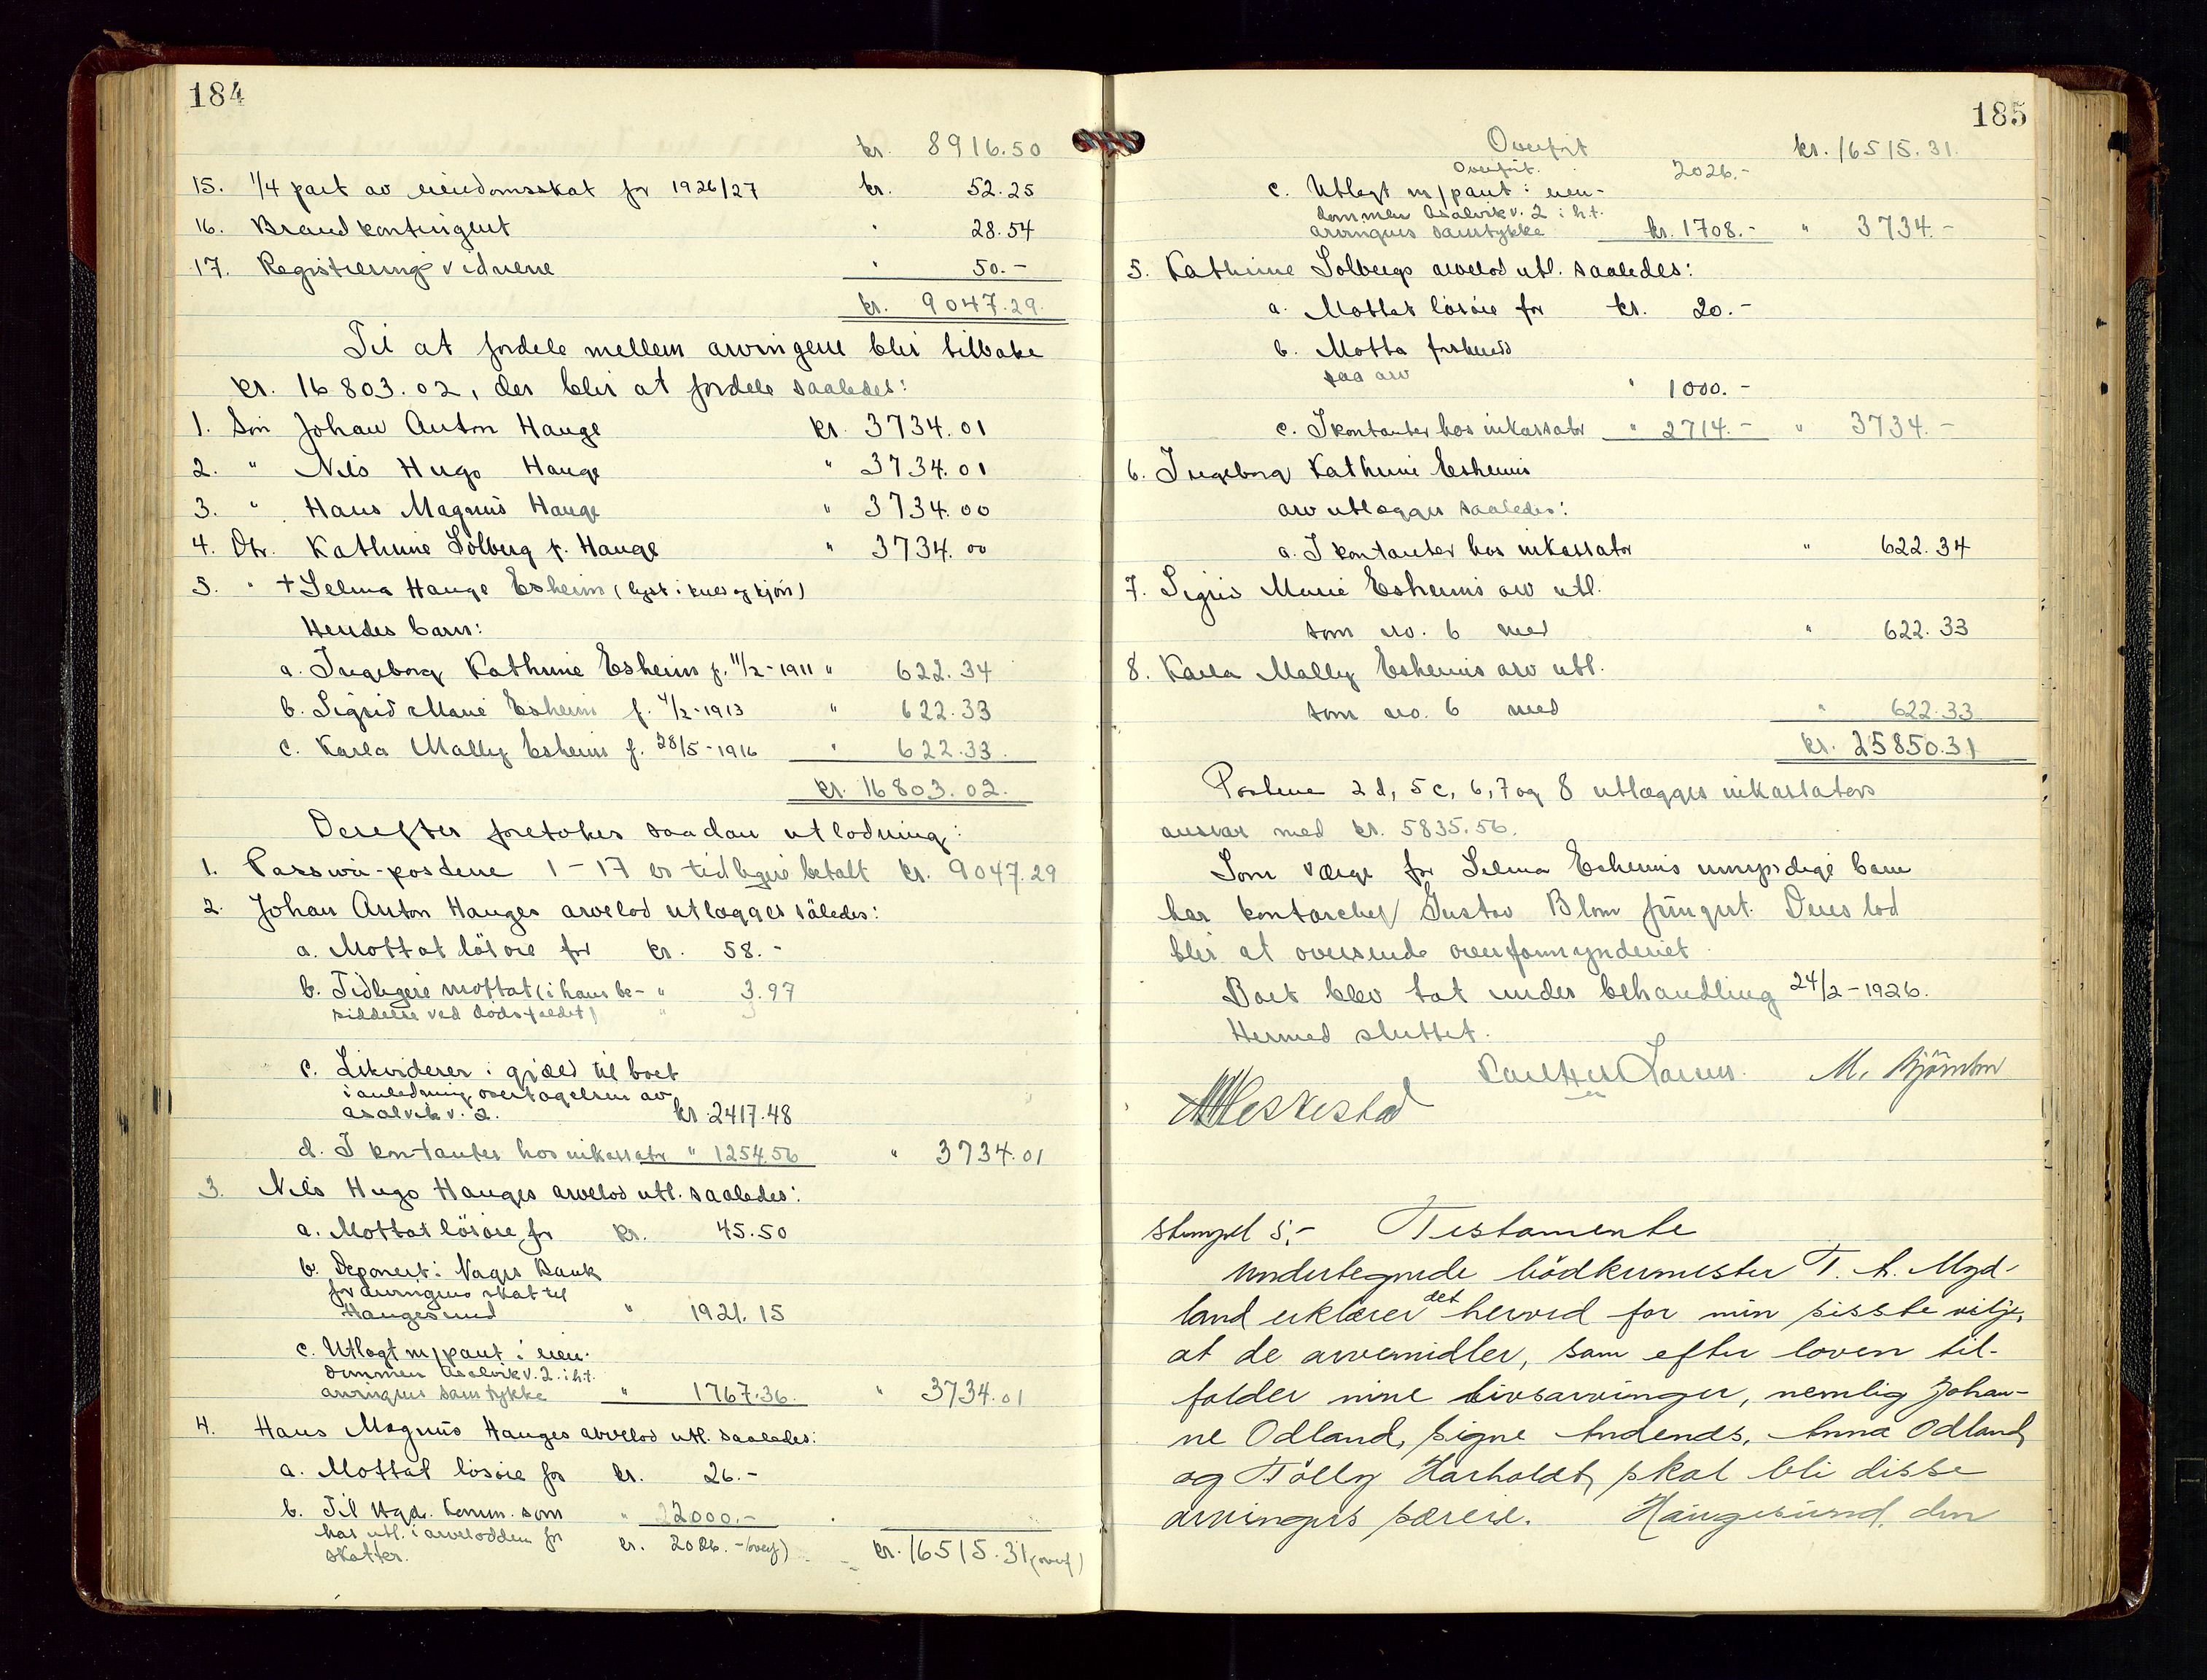 184
kr. 8916.50
15. 1/4 part av eiendomsskat for 1926/27 kr. 52.25
16. Brandkontingent " 28.54
17. Registreringsvidnene " 50.-
kr. 9047.29.
Til at fordele mellem arvingene blir tilbake
kr. 16803.02, der blir at fordele saaledes:
1. Søn Johan Anton Hauge kr. 3734.01
2. " Nils Hugo Hauge " 3734.01
3. " Hans Magnus Hauge " 3734.00
4. Dtr. Kathrine Solberg f. Hauge " 3734.00
5. " + Selma Hauge Esheim (lyst i kuld og kjøn)
Hendes barn:
a. Ingeborg Kathrine Esheim f. 11/2-1911 " 622.34
b. Sigrid Marie Esheim f. 4/2-1913 " 622.33
c. Karla Mally Esheim f. 28/5-1916 " 622.33.
kr. 16803.02.
Derefter foretokes saadan utlodning:
1. Passiva-postene 1-17 er tidligere betalt kr. 9047.29
2. Johan Anton Hauges arvelod utlægges således:
a. Mottat løsøre for kr. 58.-
b. Tidligere mottat (i hans be- " 3.97
siddelse ved dødsfaldet)
c. Likviderer i gjæld til boet
i anledning overtagelsen av
Asalvik v. 2. kr. 2417.48
d. I kontanter hos inkassator " 1254.56 " 3734.01
3. Nils Hugo Hauges arvelod utl. saaledes:
a. Mottat løsøre for kr. 45.50
b. Deponert i Norges Bank
for arvingens skat til
Haugesund " 1921.15
c. Utlagt m/pant i eien-
dommen Asalvik v. 2. i h.t.
arvingens samtykke " 1767.36. " 3734.01
4. Hans Magnus Hauges arvelod utl. saaledes:
a. Mottat løsøre for kr. 26.-
b. Til Hgsd. komm. som " 2000.-
har utl. i arvelodden for
skatter. kr. 2026.- (overf) kr. 16515.31 (overf)
185
Overført kr. 16515.31.
Overført. 2026.-
c. Utlagt m/pant i eien-
dommen Asalvik v. 2 i h.t.
arvingens samtykke kr. 1708.- " 3734.-
5. Kathrine Solbergs arvelod utl. saaledes:
a. Mottat løsøre for kr. 20.-
b. Motta forskudd
paa arv " 1000.-
c. I kontanter hos inkassator " 2714.- " 3734.-
6. Ingeborg Kathrine Esheims
arv utlægges saaledes:
a. I kontanter hos inkassator " 622.34
7. Sigrid Marie Esheims arv utl.
som no. 6 med " 622.33
8. Karla Mally Esheims arv utl.
som no. 6 med " 622.33
kr. 25850.31
Postene 2d, 5c, 6, 7 og 8 utlægges inkassators
ansvar med kr. 5835.56.
Som værge for Selma Esheims umyndige barn
har kontorchef Gustav Blom fungert. Deres lod
blir at oversende overformynderiet.
Boet blev tat under behandling 24/2-1926.
Hermed sluttet.
M. Bjørnbu
Heskestad
Stempel 5,- Testamente
Undertegnede bödkermester T. A. Myd-
land erklærer det herved for min sisste vilje,
at de arvemidler, som efter loven til-
falder mine livsarvinger, nemlig Johan-
ne Odland, Signe Andenæs, Anna Odland
og Tölly Harholdt, skal bli disse
arvingers særeie. Haugesund, den